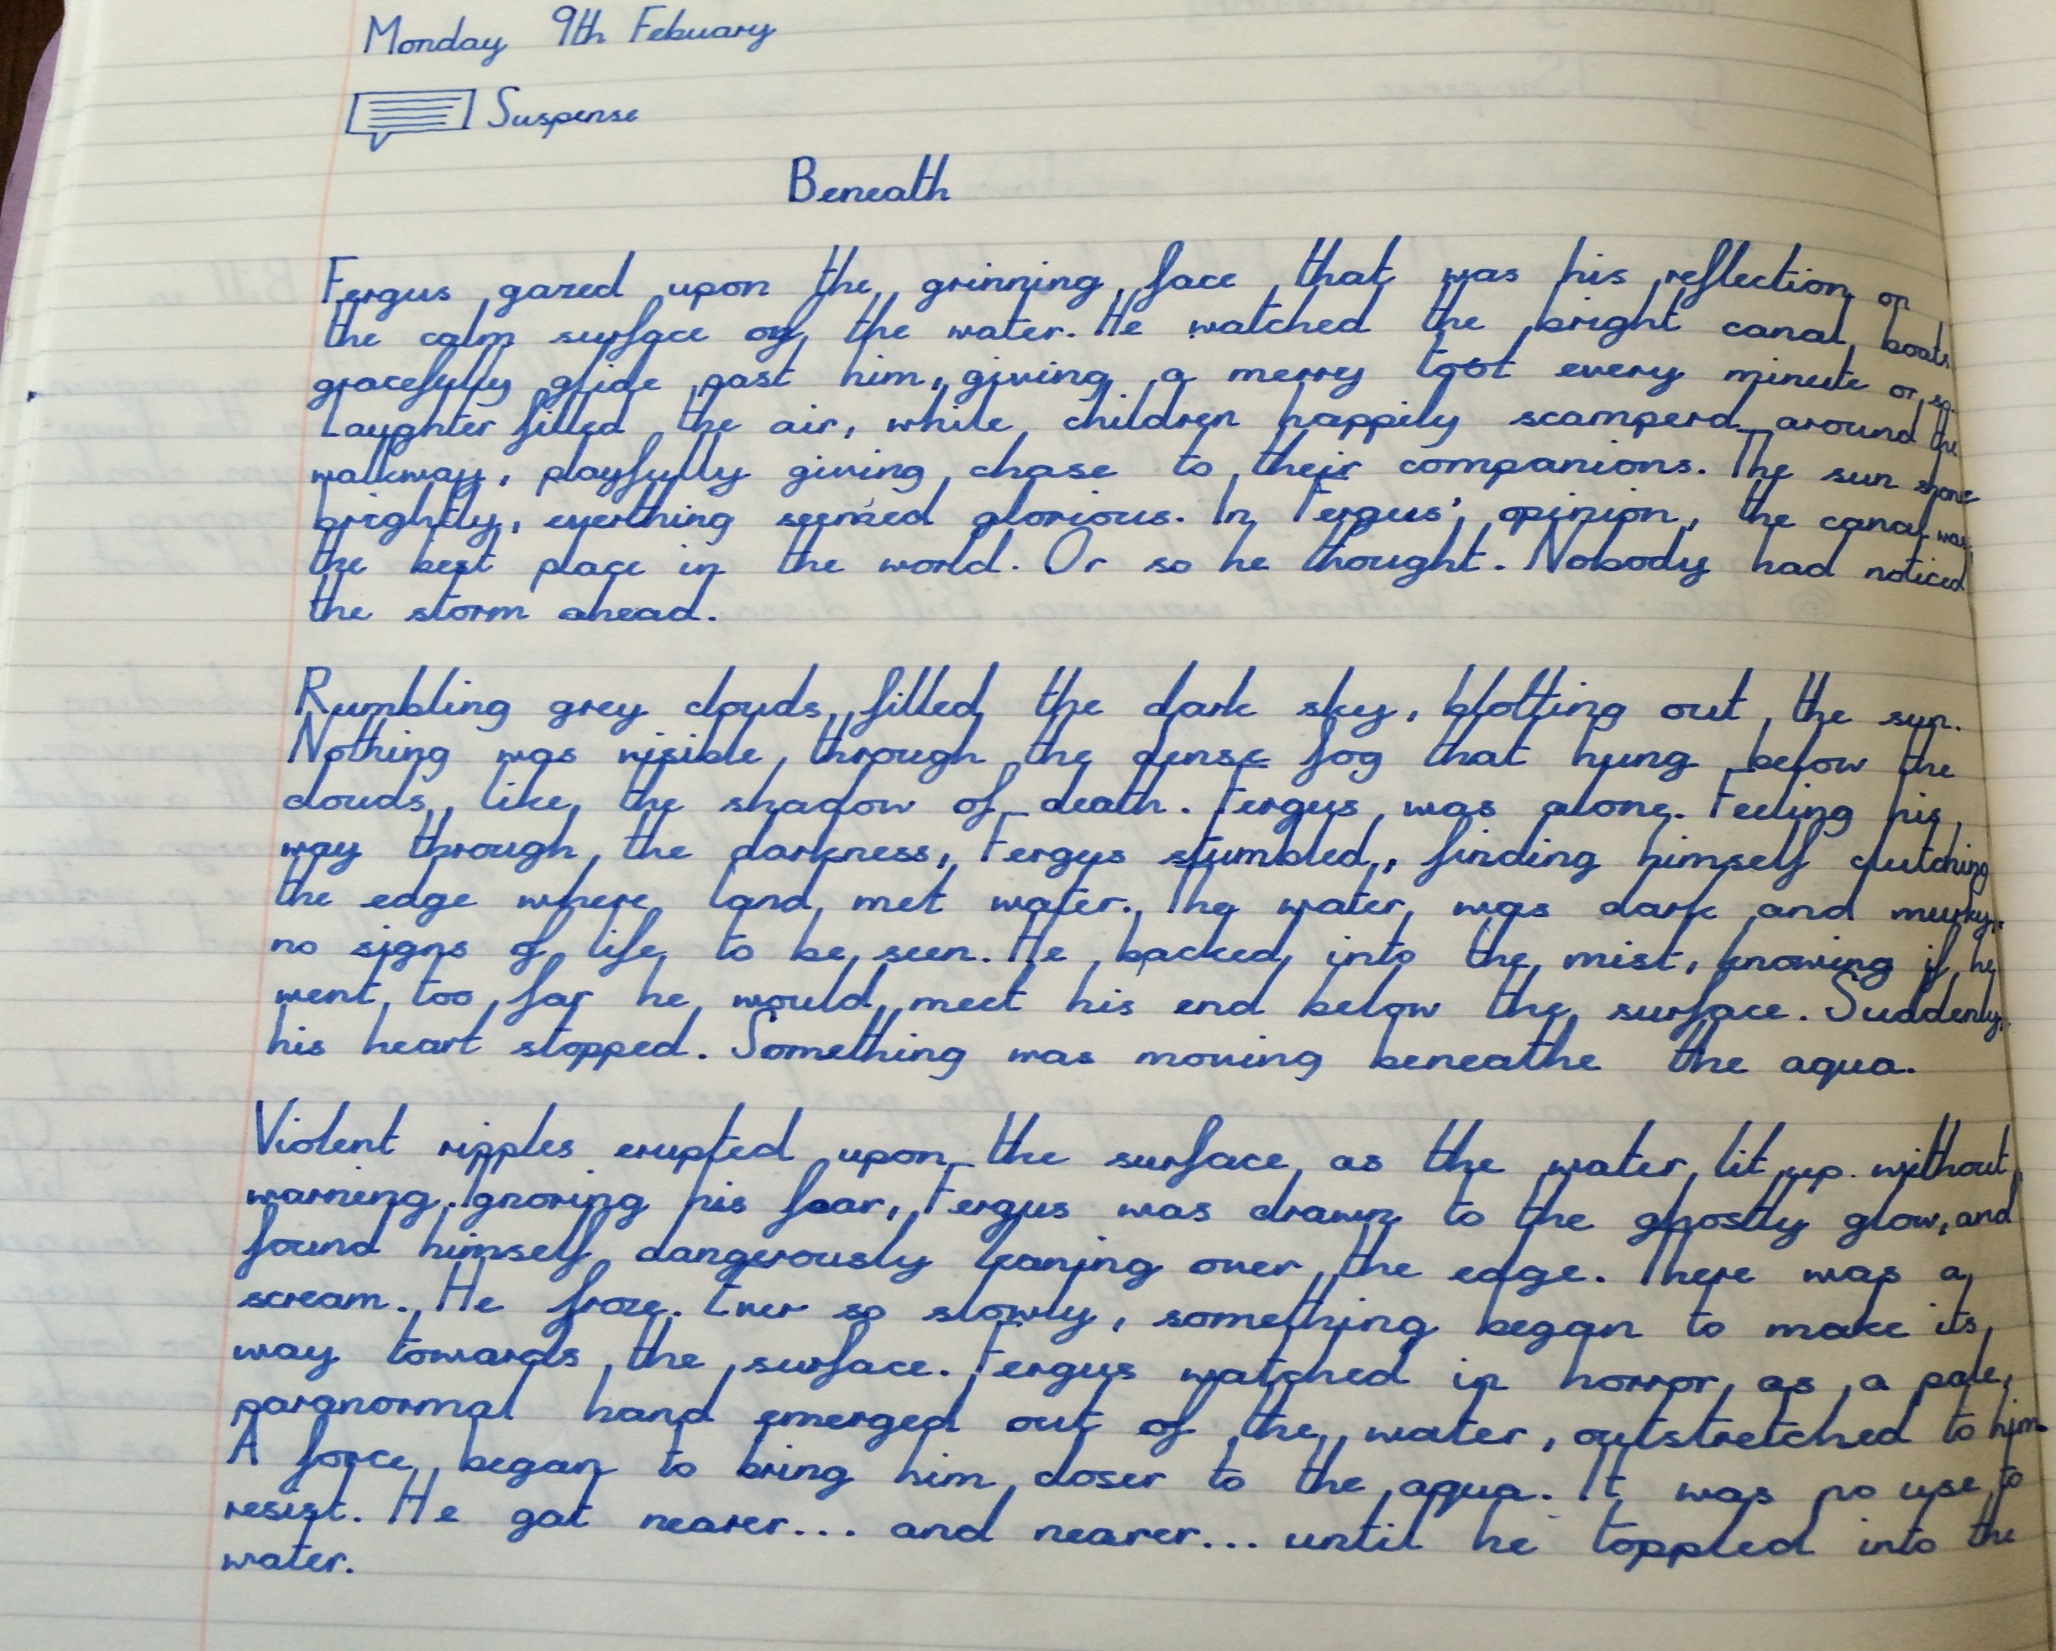 Monday 9th Febuary
Suspense
Beneath
Fergus gazed upon the grinning face that was his reflection on
the calm surface of the water. He watched the bright canal boats
gracefully glide past him, giving a merry toot every minute or so.
Laughter filled the air, while children happily scamperd around the
walkway, playfully giving chase to their companions. The sun shone
brightly, everthing seemed glorious. In Fergus' opinion, the canal was
the best place in the world. Or so he thought. Nobody had noticed
the storm ahead.
Rumbling grey clouds filled the dark sky, blotting out the sun.
Nothing was visible through the dense fog that hung below the
clouds, like the shadow of death. Fergus was alone. Feeling his
way through the darkness, Fergus stumbled, finding himself clutching
the edge where land met water. The water was dark and murky,
no signs of life to be seen. He backed into the mist, knowing if he
went too far he would meet his end below the surface. Suddenly,
his heart stopped. Something was moving beneathe the aqua.
Violent ripples erupted upon the surface as the water lit up without
warning. Ignoring his fear, Fergus was drawn to the ghostly glow, and
found himself dangerously leaning over the edge. There was a
scream. He froze. Ever so slowly, something began to make its
way towards the surface. Fergus watched in horror as a pale,
paranormal hand emerged out of the water, outstretched to him.
A force began to bring him closer to the aqua. It was no use to
resist. He got nearer... and nearer... until he toppled into the
water.